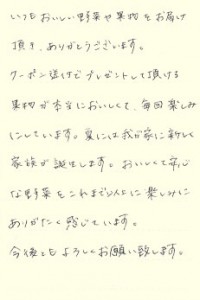 いつもおいしい野菜や果物をお届け
頂き、ありがとうございます。
クーポン送付でプレゼントして頂ける
果物が本当においしくて、毎回楽しみ
にしています。夏には我が家に新しく
家族が誕生します。おいしくて安心
な野菜をこれまで以上に楽しみに
ありがたく感じています。
今後ともよろしくお願い致します。